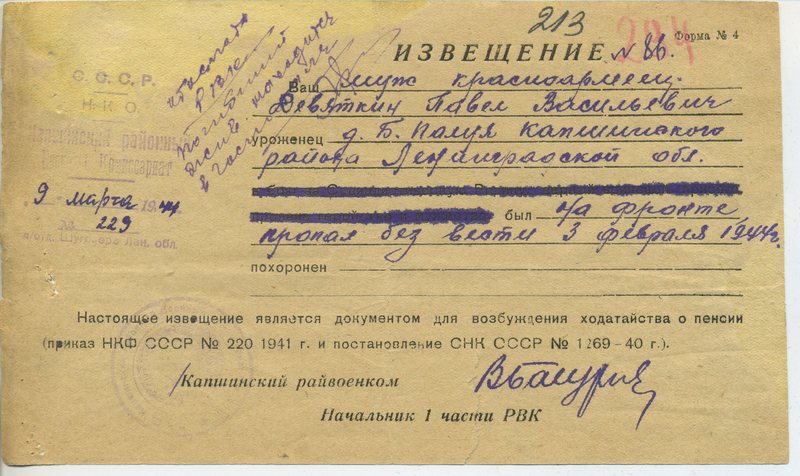 213
224
Форма № 4
ИЗВЕЩЕНИЕ № 86.
Ваш муж красноармеец
Девяткин Павел Васильевич
уроженец д. Б. Палуя Капшинского
района Ленинградской обл.
был на фронте
пропал без вести 3 февраля 1944г.
похоронен
Настоящее извещение является документом для возбуждения ходатайства о пенсии
(приказ НКФ СССР № 220 1941 г. и постановление СНК СССР № 1269-40 г.).
Капшинский райвоенком
Начальник 1 части РВК
С. С. С. Р.
Н. К. О.
Капшинский районный
Комиссариат
9 марта 1944
№ 229
Шугозеро Лен. обл.
РВК
погибший
жив находится
в госпитале